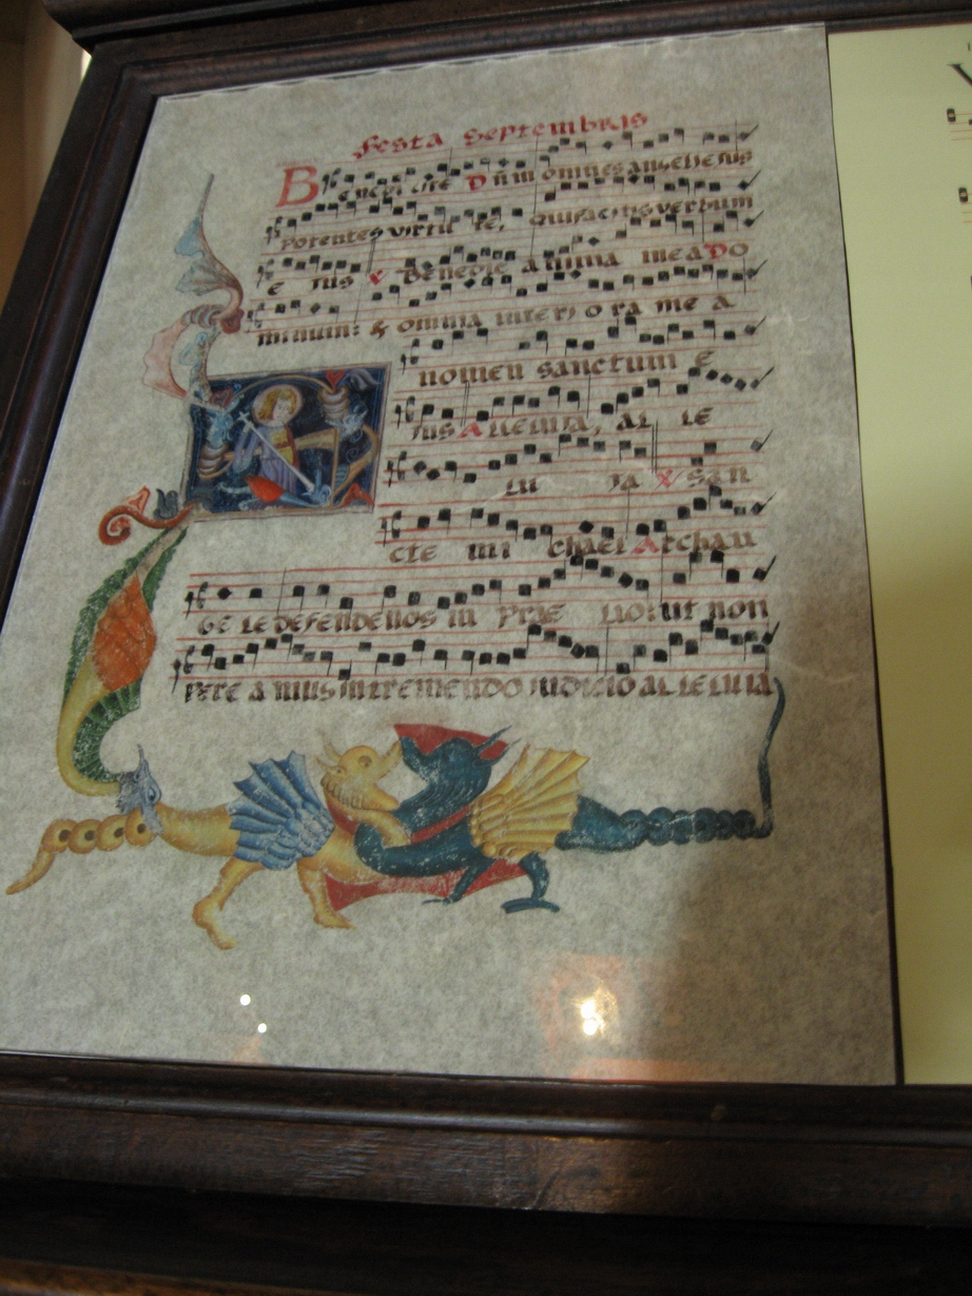 Festa Septembris
Benedicite Dñm omnes angeli ejus
potentes virtute, qui facitis verbum
e jus ℣ Benedic anima mea Do
minum: & omnia interiora me a
nomen sanctum e
jus Alleluja, al le
lu ja ℣ San
cte mi chael Archan
ge le defende nos in præ lio: ut non
pere a mus in tremendo judicio al le lu ja